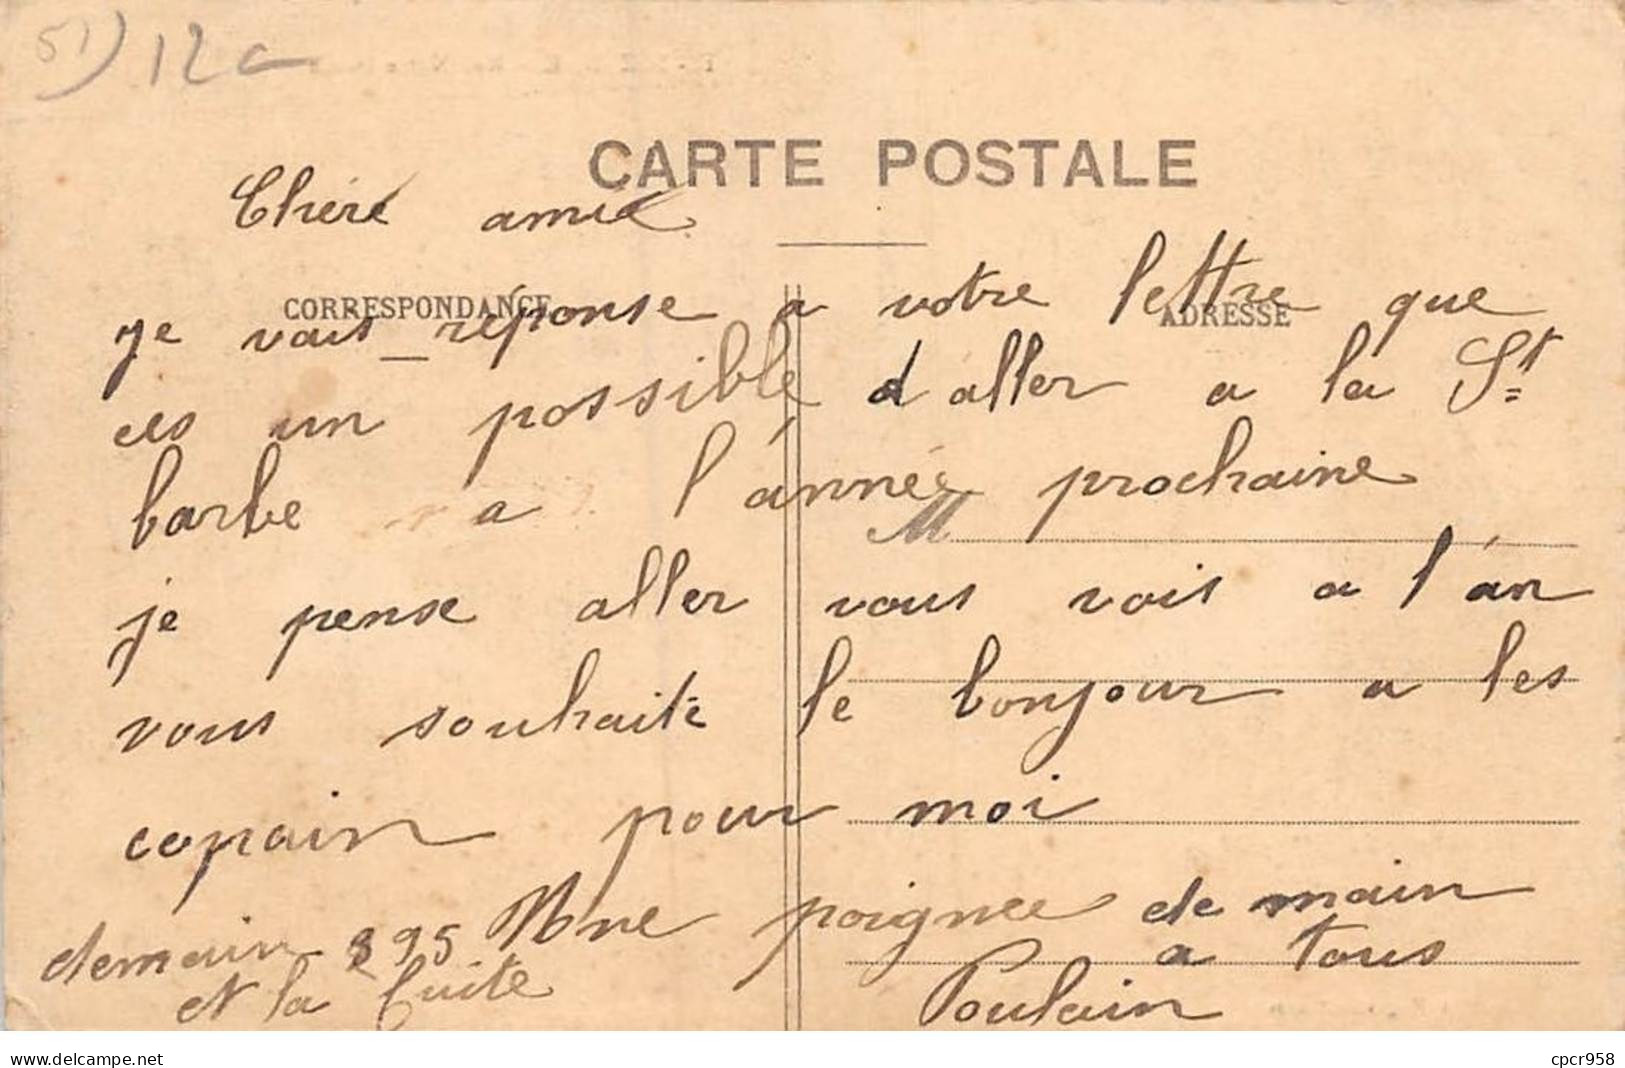 51) 12c
CARTE POSTALE
Chére amie
CORRESPONDANCE
ADRESSE
je vais réponse a votre lettre que
ces un possible d aller a la St
barbe a l'année prochaine
M
je pense aller vous vois a l'an
vous souhaite le bonjour a les
copain pour moi
Une poignee de main
a tous
demain 395
et la cuite
Poulain
www.delcampe.net
cpcr958